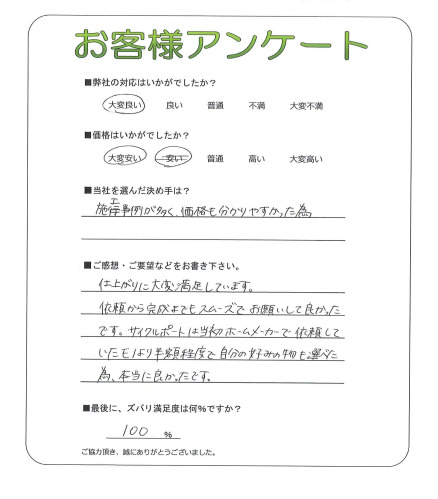 お客様アンケート
■弊社の対応はいかがでしたか?
大変良い 良い 普通 不満 大変不満
■価格はいかがでしたか?
大変安い 安い 普通 高い 大変高い
■当社を選んだ決め手は?
施工事例が多く、価格も分かりやすかった為
■ご感想・ご要望などをお書き下さい。
仕上がりに大変満足しています。
依頼から完成までもスムーズで お願いして良かった
です。サイクルポートは当初 ホームメーカーで 依頼して
いたモより半額程度で 自分の好みの物も選べた
為、本当に良かったです。
■最後に、ズバリ満足度は何%ですか?
100 %
ご協力頂き、誠にありがとうございました。